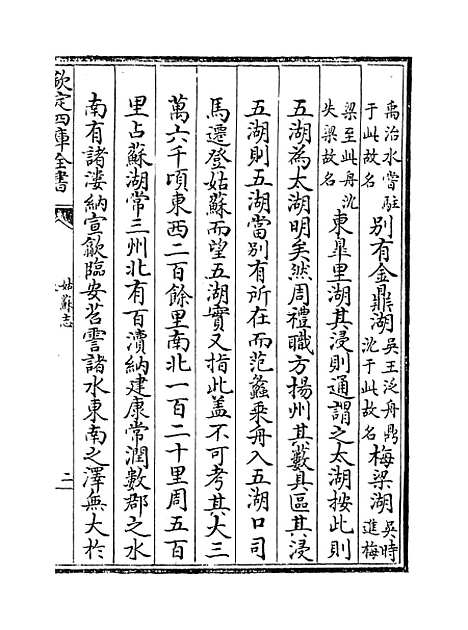 禹治水嘗駐
于此故名
别有金鼎湖
吳王泛舟鼎
沈于此故名
梅梁湖
吳時
進梅
梁至此舟沈
失梁故名
東臯里湖其浸則通謂之太湖按此則
五湖為太湖明矣然周禮職方揚州其藪具區其浸
五湖則五湖當别有所在而范蠡乘舟入五湖口司
馬遷登姑蘇而望五湖實又指此盖不可考其大三
萬六千頃東西二百餘里南北一百二十里周五百
里占蘇湖常三州北有百瀆納建康常潤數郡之水
南有諸漊納宣歙臨安苕霅諸水東南之澤無大於
欽定四庫全書
姑蘇志
二